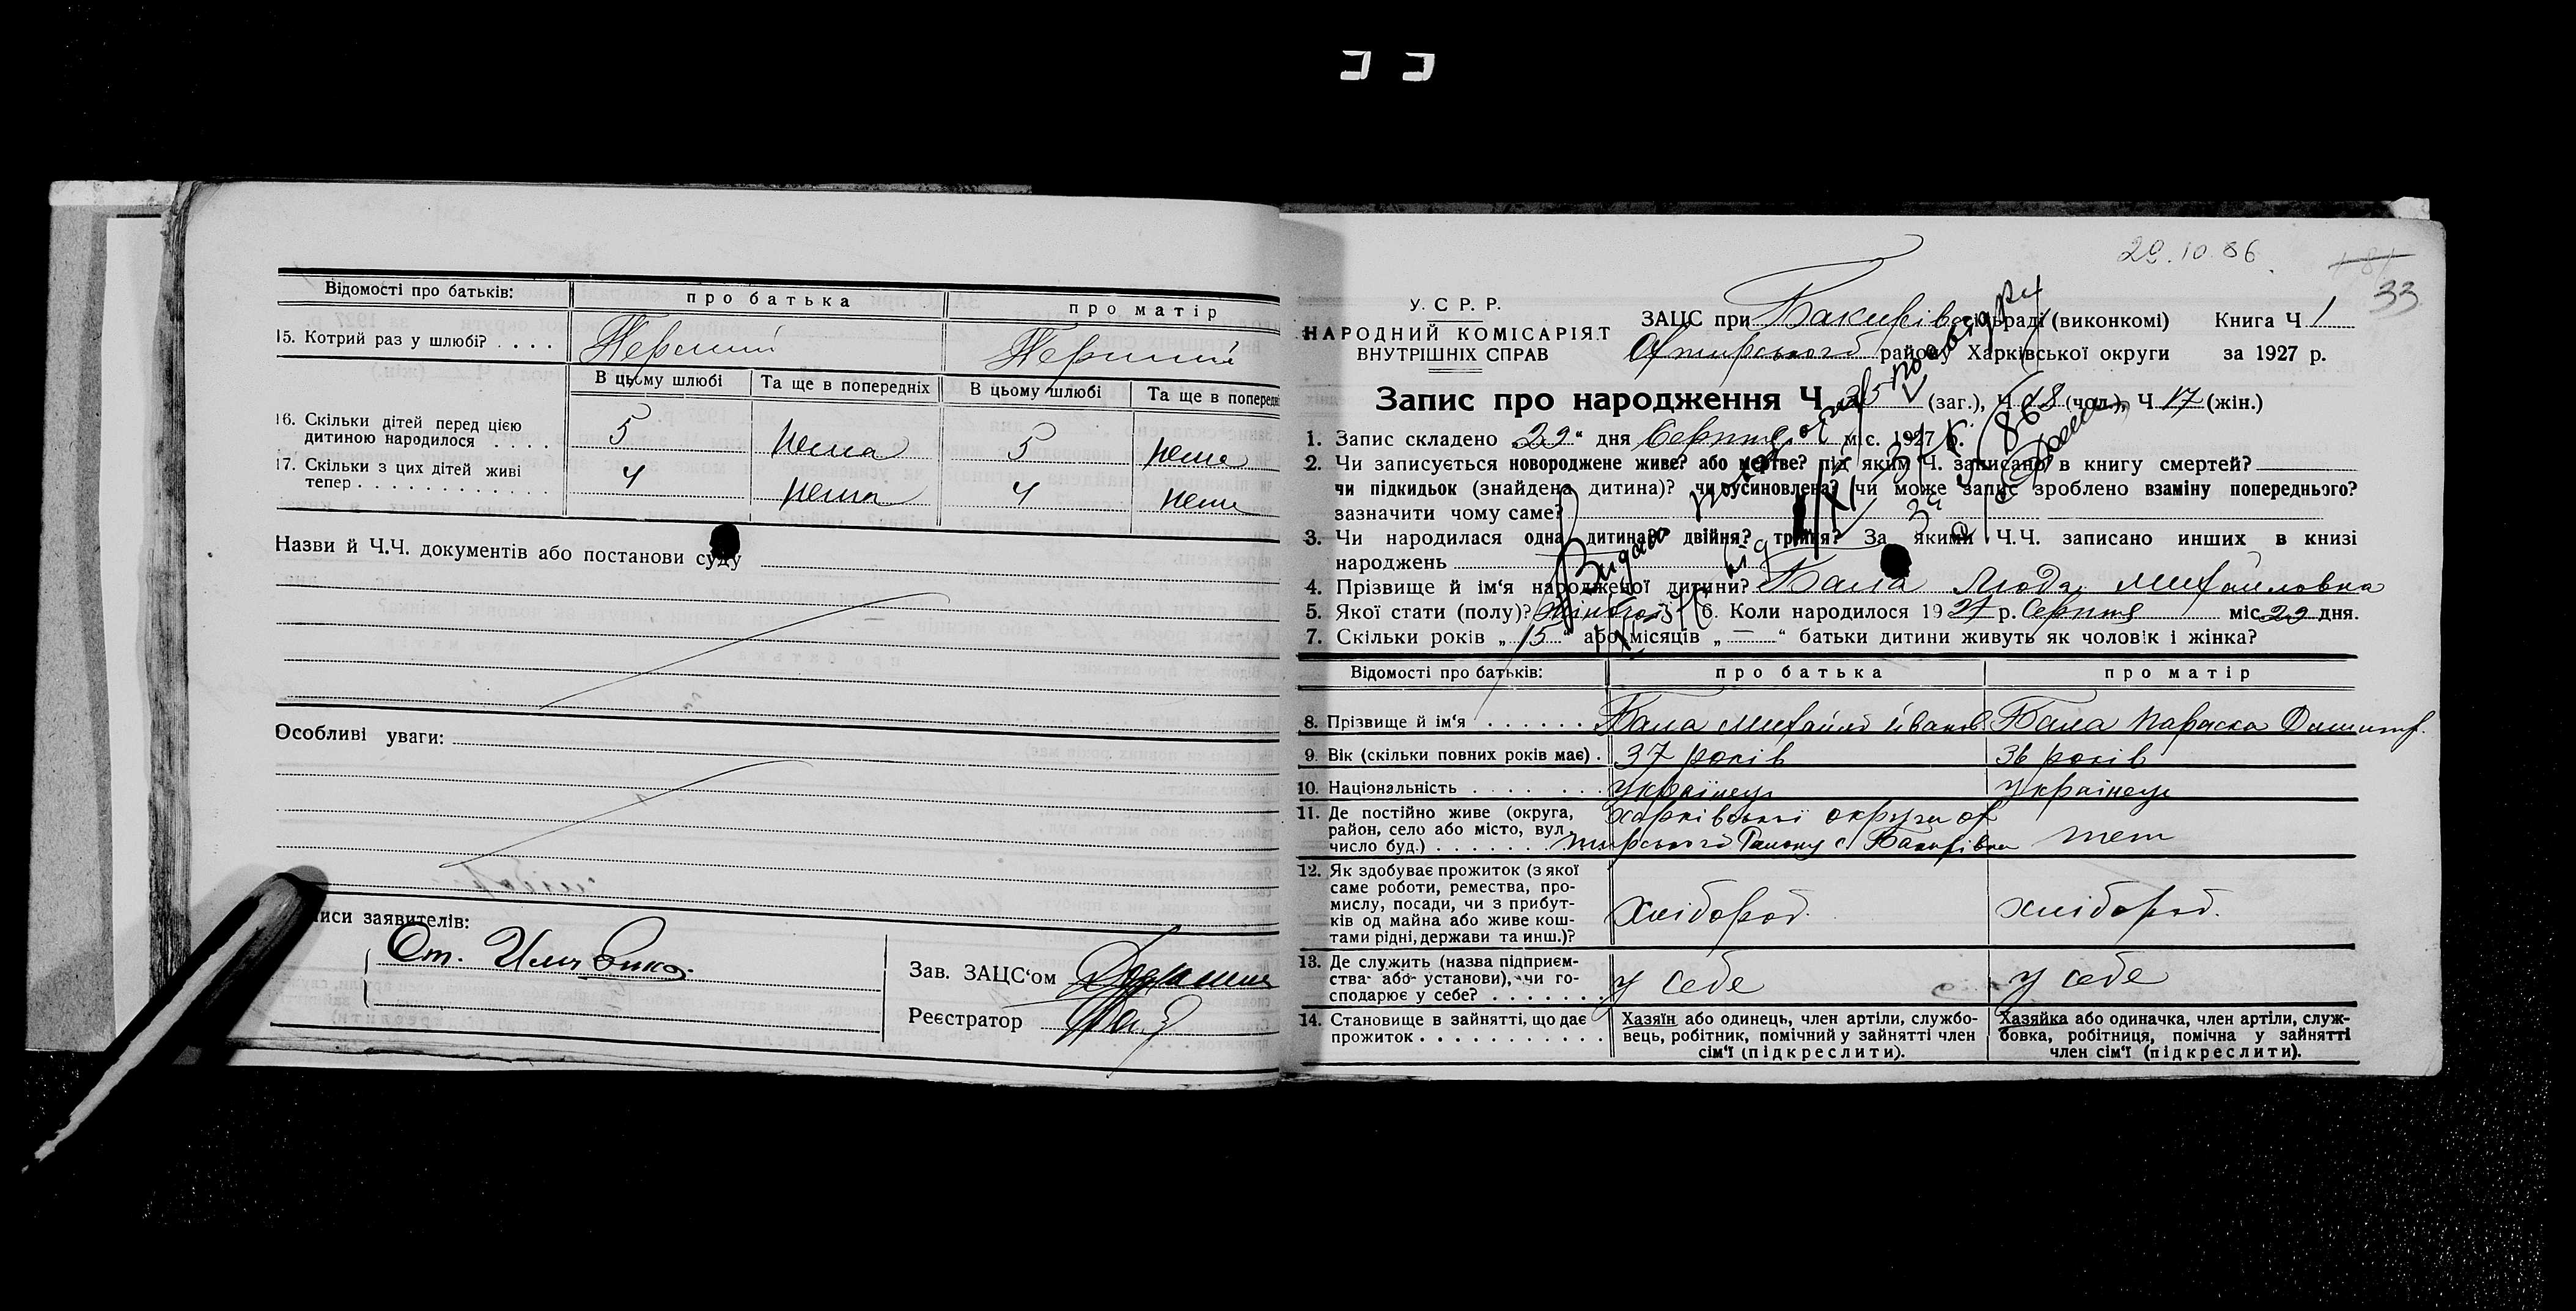 Відомості про батьків: про батька про матір
15. Котрий раз у шлюбі? . . . . Перший Перший
В цьому шлюбі Та ще в попередніх В цьому шлюбі Та ще в попередні
16. Скільки дітей перед цією
дитиною народилося . . . . . 5 нема 5 нема
17. Скільки з цих дітей живі
тепер . . . . . . . . . . . . . 4 нема 4 нема
Назви й Ч.Ч. документів або постанови суду
Особливі уваги:
писи заявителів:
От.
Зав. ЗАЦС'ом
Реєстратор
29.10.86
181
33
У. С. Р. Р.
НАРОДНИЙ КОМІСАРІЯТ
ВНУТРІШНІХ СПРАВ
ЗАЦС при Бакирів сільраді (виконкомі) Книга Ч 1
Охтирського району Харківської округи за 1927 р.
Запис про народження Ч 35 (заг.), Ч 18 (чол.), Ч 17 (жін.)
1. Запис складено „29" дня Серпня міс. 1927 р.
2. Чи записується новороджене живе? або мертве? під яким Ч. записано в книгу смертей?
чи підкидьок (знайдена дитина)? чи усиновлена? чи може запис зроблено взаміну попереднього?
зазначити чому саме?
3. Чи народилася одна дитина, двійня? трійня? За якими Ч.Ч. записано инших в книзі
народжень
4. Прізвище й ім'я народженої дитини? Бала Люда Михайловна
5. Якої стати (полу)? жіночої 6. Коли народилося 1927 р. Серпня міс. 22 дня.
7. Скільки років „15" або місяців „—" батьки дитини живуть як чоловік і жінка?
Відомості про батьків: про батька про матір
8. Прізвище й ім'я . . . . . . Бала Михайло Іванов Бала Параска Дмитр.
9. Вік (скільки повних років має) . 37 років 36 років
10. Національність . . . . . . . українець українець
11. Де постійно живе (округа,
район, село або місто, вул.,
число буд.) . . . . . . . Харківської округи Ох
тирського Району с Бакирівка теж
12. Як здобуває прожиток (з якої
саме роботи, ремества, про-
мислу, посади, чи з прибут-
ків од майна або живе кош-
тами рідні, держави та инш.)? хлібороб. хлібороб.
13. Де служить (назва підприєм-
ства або установи), чи го-
сподарює у себе? . . . . . . . у себе у себе
14. Становище в зайнятті, що дає
прожиток . . . . . . . . . . .
Хазяїн або одинець, член артіли, службо-
вець, робітник, помічний у зайнятті член
сім'ї (підкреслити).
Хазяйка або одиначка, член артіли, служ-
бовка, робітниця, помічна у зайнятті
член сім'ї (підкреслити).